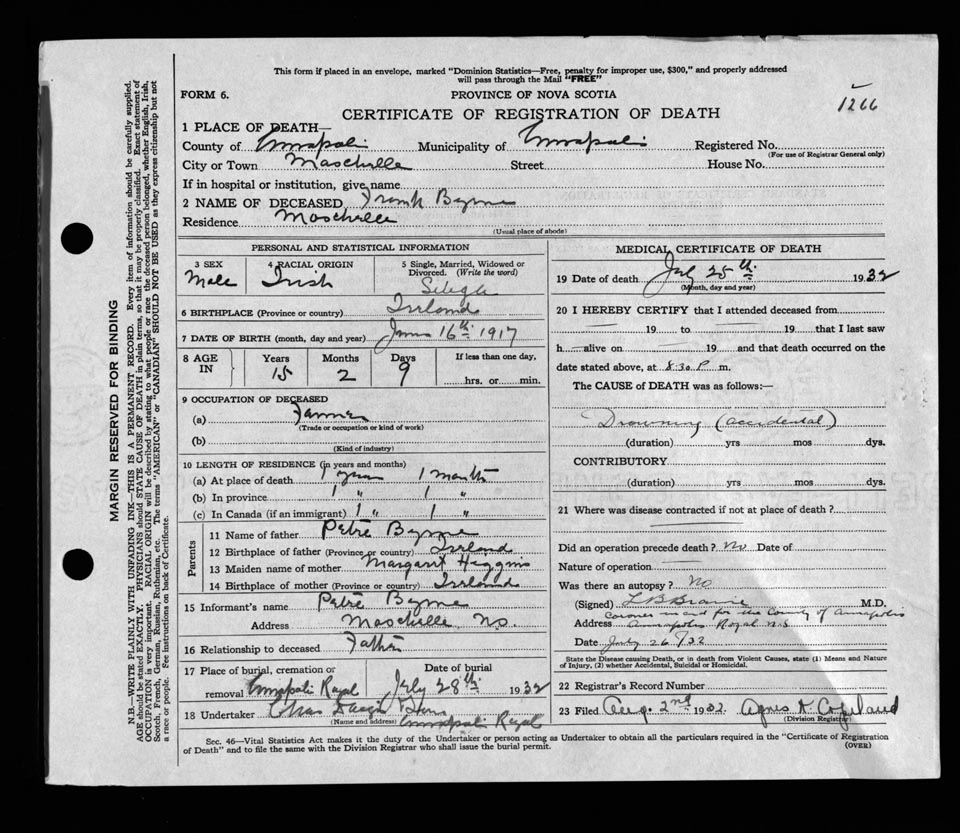 This form if placed in an envelope, marked "Dominion Statistics—Free, penalty for improper use, $300," and properly addressed
will pass through the Mail "FREE"
FORM 6.
PROVINCE OF NOVA SCOTIA
1266
CERTIFICATE OF REGISTRATION OF DEATH
1 PLACE OF DEATH—
County of Annapolis Municipality of Annapolis Registered No.
(For use of Registrar General only)
City or Town Moschelle Street House No.
If in hospital or institution, give name
2 NAME OF DECEASED Frank Byrne
Residence Moschelle
(Usual place of abode)
PERSONAL AND STATISTICAL INFORMATION
3 SEX 4 RACIAL ORIGIN 5 Single, Married, Widowed or
Divorced. (Write the word)
Male Irish Single
6 BIRTHPLACE (Province or country) Irland
7 DATE OF BIRTH (month, day and year) 16th 1917
8 AGE IN Years Months Days If less than one day,
15 2 9 hrs. or min.
9 OCCUPATION OF DECEASED
(a) Farmer
(Trade or occupation or kind of work)
(b)
(Kind of industry)
10 LENGTH OF RESIDENCE (in years and months)
(a) At place of death 1 year 1 month
(b) In province 1 " 1 "
(c) In Canada (if an immigrant) 1 " 1 "
Parents
11 Name of father Petre Byrne
12 Birthplace of father (Province or country) Irland
13 Maiden name of mother Margaret Higgins
14 Birthplace of mother (Province or country) Irland
15 Informant's name Petre Byrne
Address Moschelle N.S.
16 Relationship to deceased Father
17 Place of burial, cremation or Date of burial
removal Annapolis Royal July 28th 1932
18 Undertaker Chas & Son
(Name and address) Annapolis Royal
MEDICAL CERTIFICATE OF DEATH
19 Date of death July 25th 1932
(Month, day and year)
20 I HEREBY CERTIFY that I attended deceased from
19 to 19 that I last saw
h alive on 19 and that death occurred on the
date stated above, at 8:30 P m.
The CAUSE of DEATH was as follows:—
Drowning (accidental)
(duration) yrs mos dys.
CONTRIBUTORY
(duration) yrs mos dys.
21 Where was disease contracted if not at place of death?
Did an operation precede death? No Date of
Nature of operation
Was there an autopsy? No
(Signed) L B Braine M.D.
Coroner in and for the County of Annapolis
Address Annapolis Royal N.S
Date July 26/32
State the Disease causing Death, or in death from Violent Causes, state (1) Means and Nature
of Injury, (2) whether Accidental, Suicidal or Homicidal.
22 Registrar's Record Number
23 Filed Aug. 2nd 1932 Agnes Copeland
(Division Registrar)
Sec. 46—Vital Statistics Act makes it the duty of the Undertaker or person acting as Undertaker to obtain all the particulars required in the "Certificate of Registration
of Death" and to file the same with the Division Registrar who shall issue the burial permit.
(OVER)
MARGIN RESERVED FOR BINDING
N.B.—WRITE PLAINLY WITH UNFADING INK—THIS IS A PERMANENT RECORD. Every item of information should be carefully supplied.
AGE should be stated EXACTLY. PHYSICIANS should STATE CAUSE OF DEATH in plain terms, so that it may be properly classified. Exact statement of
OCCUPATION is very important. RACIAL ORIGIN will be described by stating to what people or race the deceased person belonged, whether English, Irish,
Scotch, French, German, Russian, Ruthenian, etc. The terms "AMERICAN" or "CANADIAN" SHOULD NOT BE USED as they express citizenship but not
a race or people. See instructions on back of Certificate.